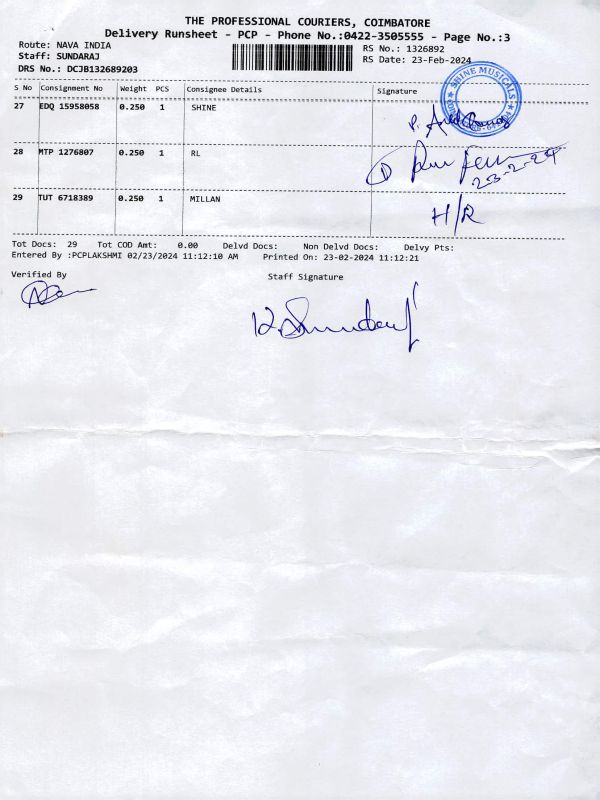 THE PROFESSIONAL COURIERS, COIMBATORE
Delivery Runsheet - PCP - Phone No.:0422-3505555 - Page No.:3
Route: NAVA INDIA RS No.: 1326892
Staff: SUNDARAJ RS Date: 23-Feb-2024
DRS No.: DCJB132689203
S No Consignment No Weight PCS Consignee Details Signature
27 EDQ 15958058 0.250 1 SHINE
SHINE MUSICALS
28 MTP 1276807 0.250 1 RL
23-2-24
29 TUT 6718389 0.250 1 MILLAN
H/R
Tot Docs: 29 Tot COD Amt: 0.00 Delvd Docs: Non Delvd Docs: Delvy Pts:
Entered By :PCPLAKSHMI 02/23/2024 11:12:10 AM Printed On: 23-02-2024 11:12:21
Verified By Staff Signature